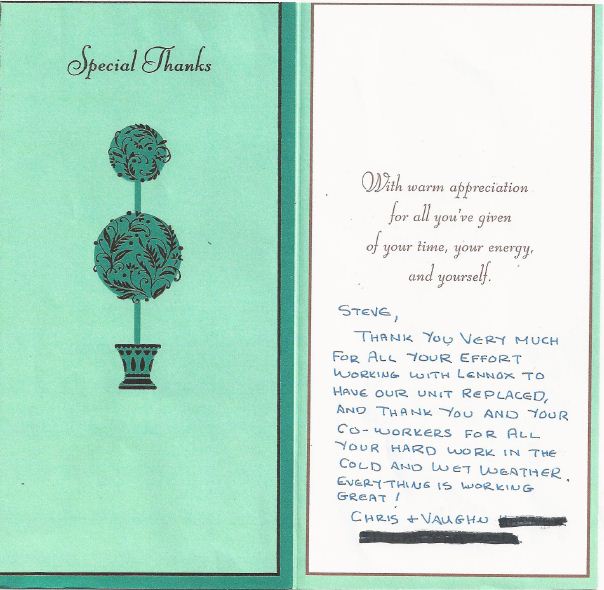 Special Thanks
With warm appreciation
for all you've given
of your time, your energy,
and yourself.
STEVE,
THANK YOU VERY MUCH
FOR ALL YOUR EFFORT
WORKING WITH LENNOX TO
HAVE OUR UNIT REPLACED,
AND THANK YOU AND YOUR
CO-WORKERS FOR ALL
YOUR HARD WORK IN THE
COLD AND WET WEATHER.
EVERYTHING IS WORKING
GREAT!
CHRIS + VAUGHN